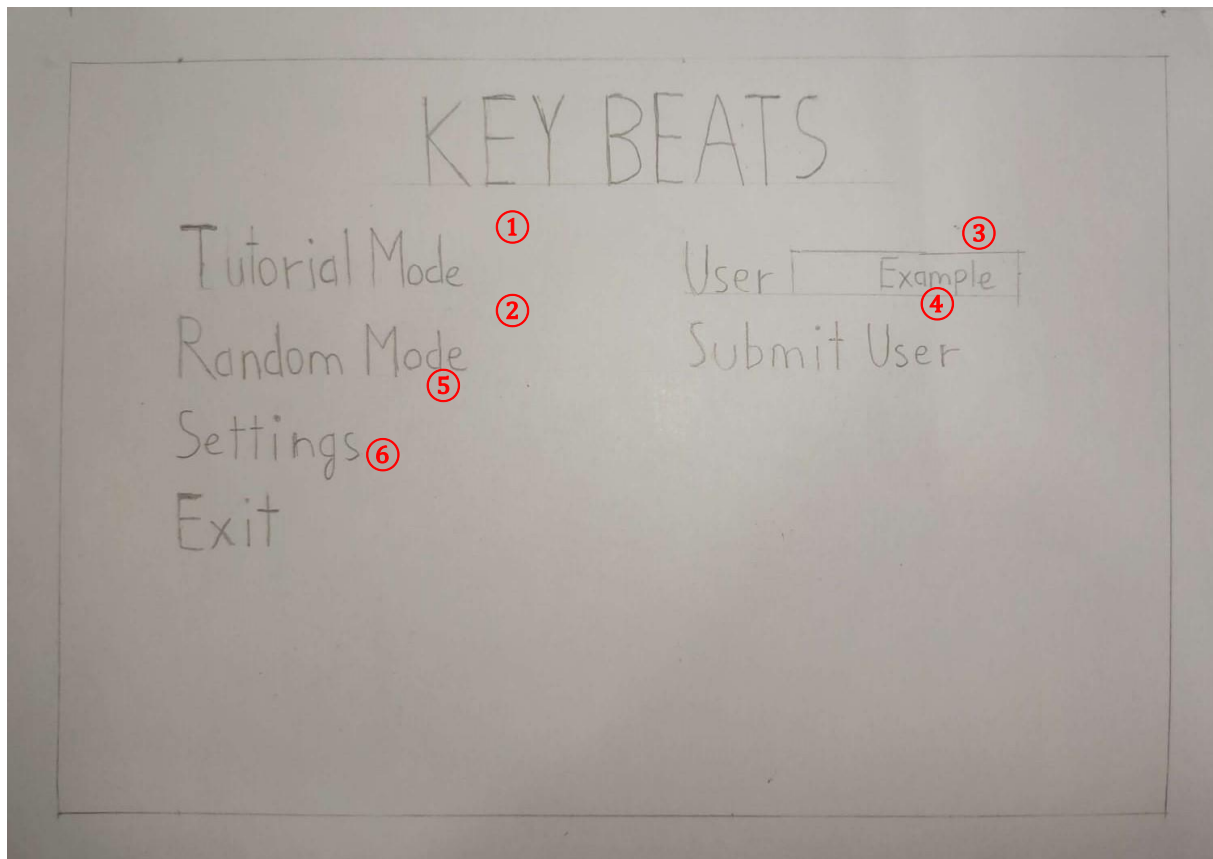 KEY BEATS
①
Tutorial Mode
②
Random Mode
⑤
Settings ⑥
Exit
③
User Example
④
Submit User